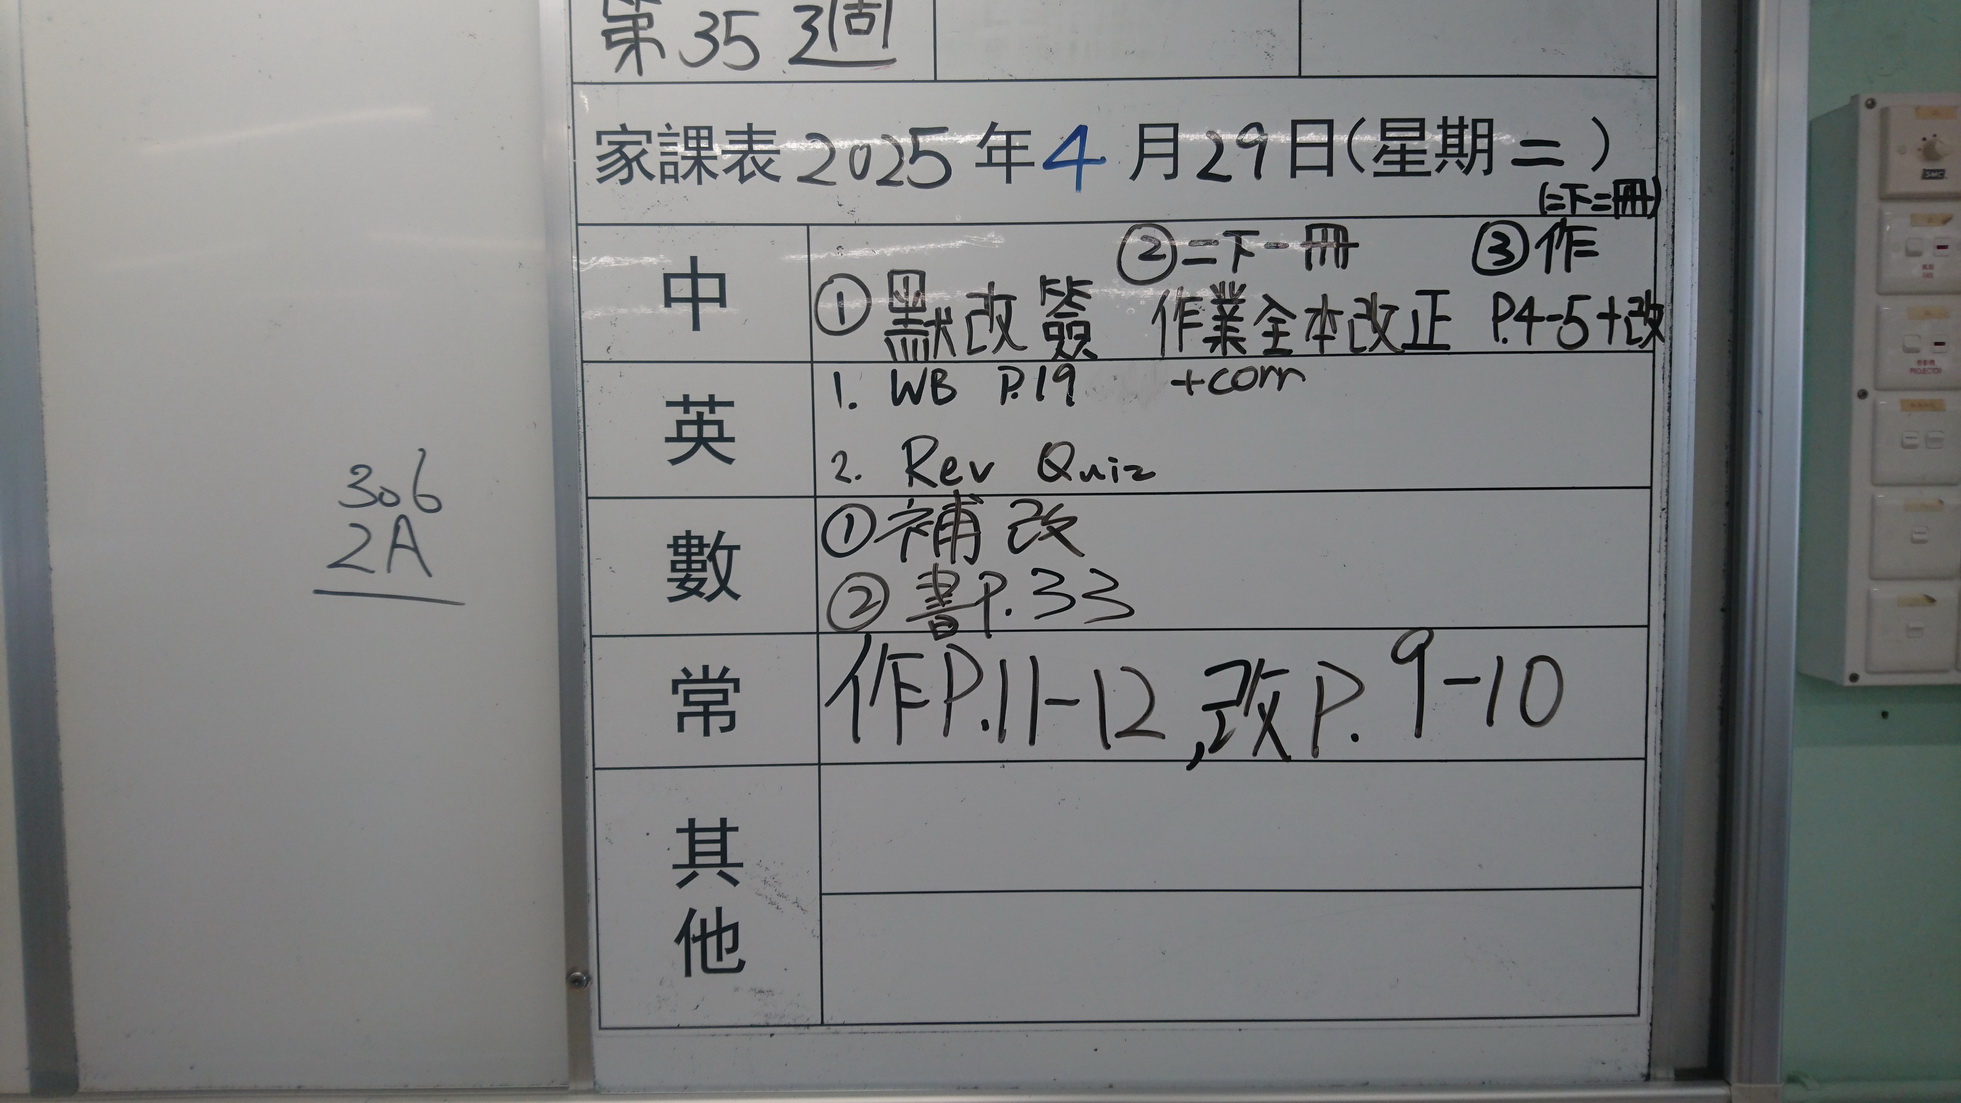 第35週
家課表2025年4月29日(星期二)
(二下二冊)
中
①默改簽
②二下一冊
作業全本改正
③作
P.4-5+改
英
1. WB P.19 +corr
2. Rev Quiz
數
①補改
②書P.33
常
作P.11-12,改P.9-10
其
他
306
2A
PROJECTOR